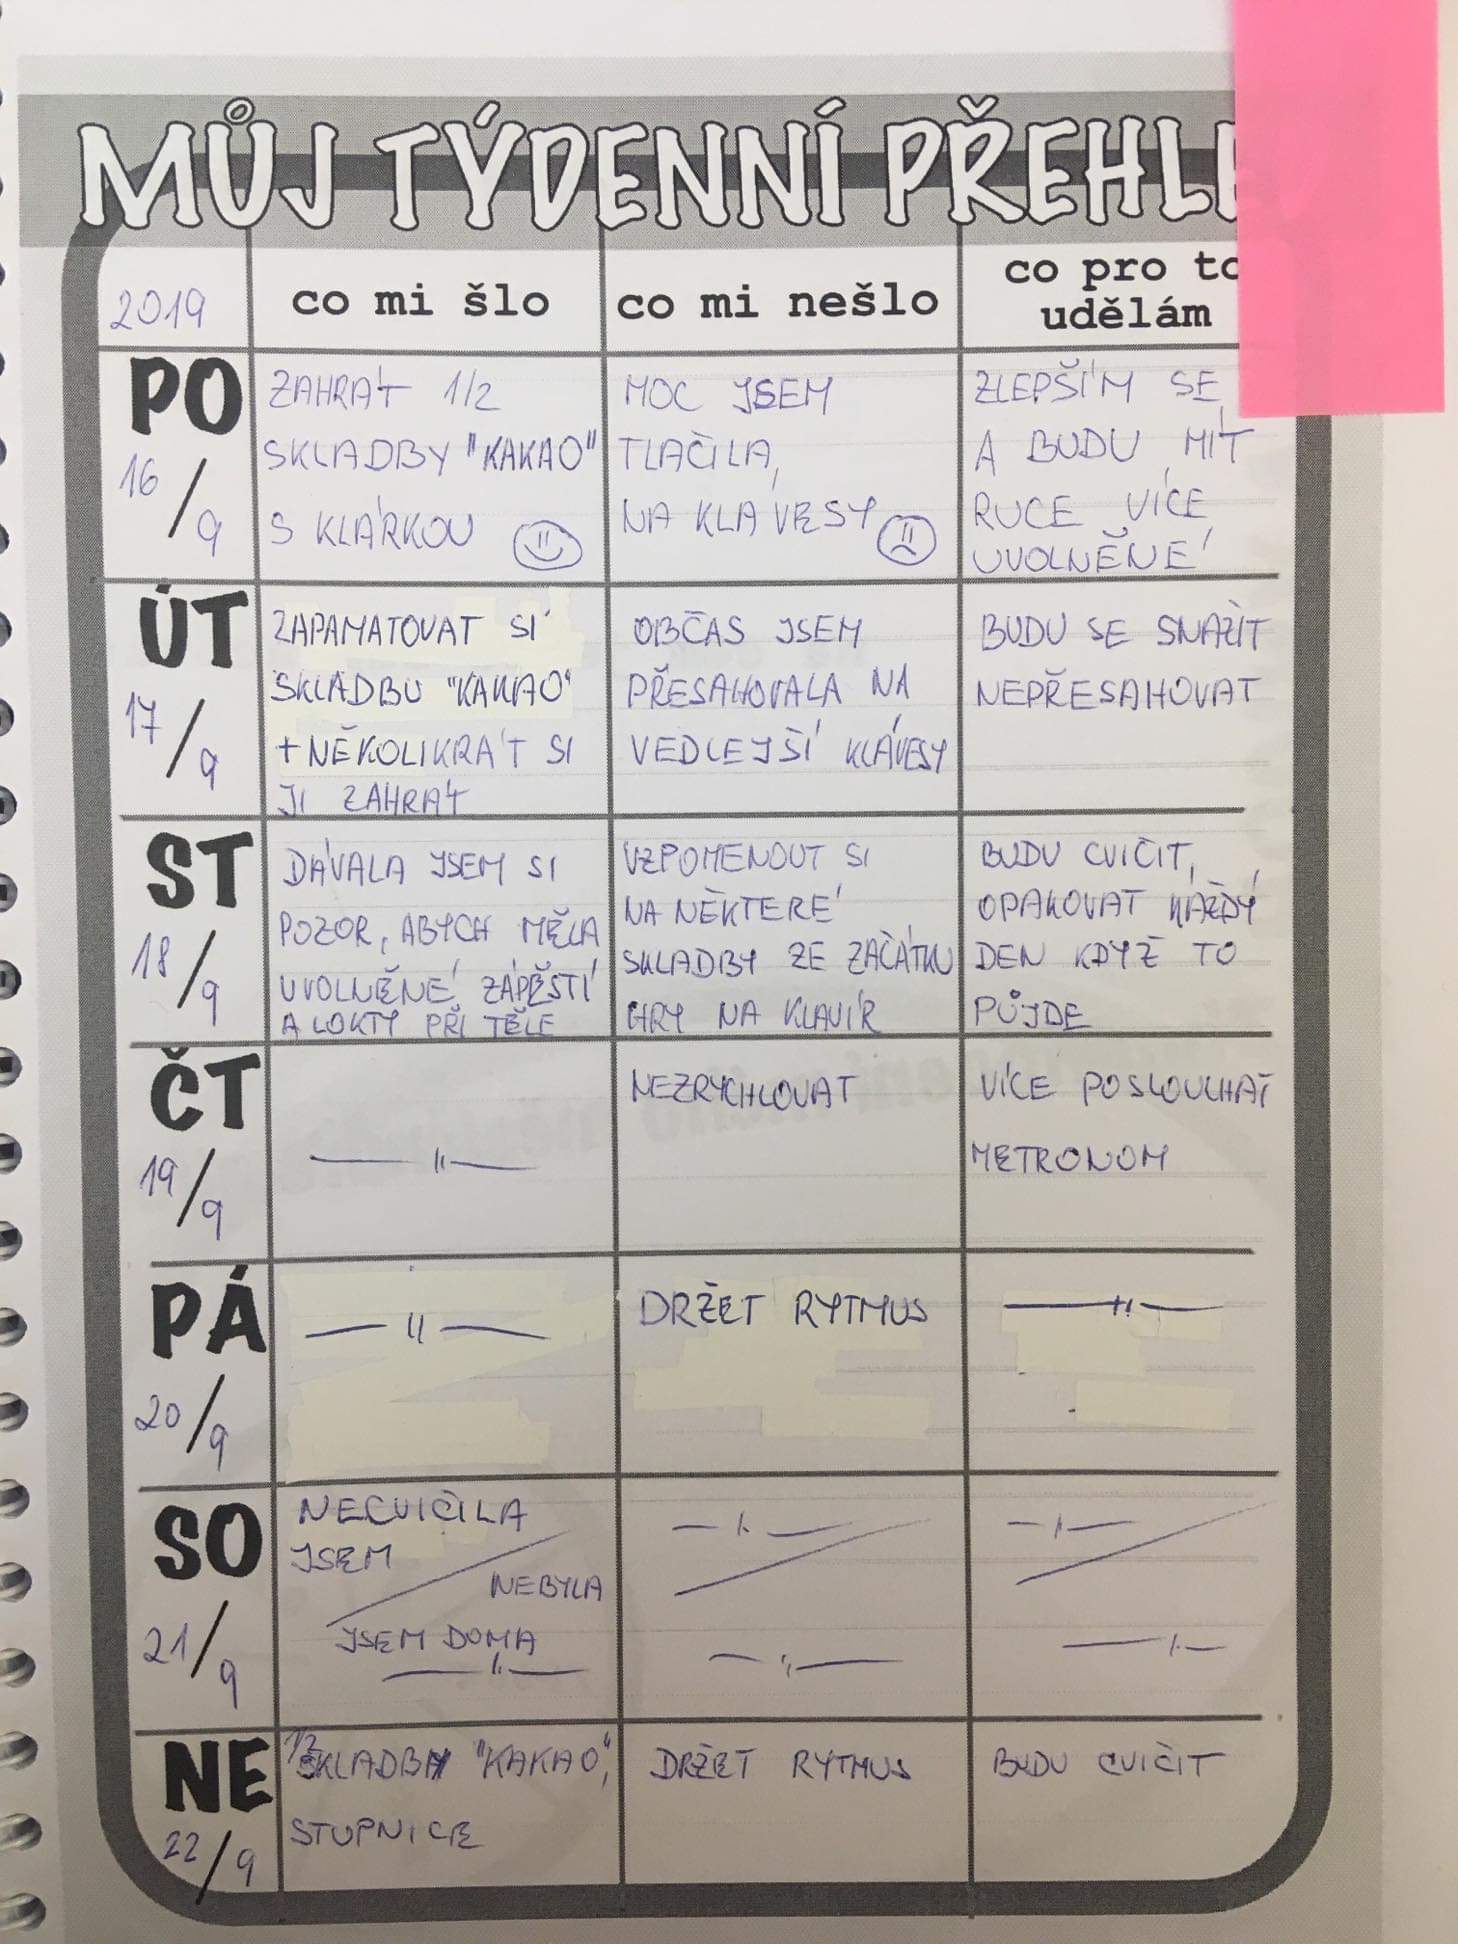 MŮJ TÝDENNÍ PŘEHL
2019
co mi šlo
co mi nešlo
co pro to
udělám
PO
16/9
ZAHRÁT 1/2
SKLADBY "KAKAO"
S KLÁRKOU
MOC JSEM
TLAČILA
NA KLÁVESY
ZLEPŠÍM SE
A BUDU MÍT
RUCE VÍCE
UVOLNĚNÉ
ÚT
17/9
ZAPAMATOVAT SI
SKLADBU "KAKAO"
+ NĚKOLIKRÁT SI
JI ZAHRÁT
OBČAS JSEM
PŘESAHOVALA NA
VEDLEJŠÍ KLÁVESY
BUDU SE SNAŽIT
NEPŘESAHOVAT
ST
18/9
DÁVALA JSEM SI
POZOR, ABYCH MĚLA
UVOLNĚNÉ ZÁPĚSTÍ
A LOKTY PŘI TĚLE
VZPOMENOUT SI
NA NĚKTERÉ
SKLADBY ZE ZAČÁTKU
HRY NA KLAVÍR
BUDU CVIČIT,
OPAKOVAT KAŽDÝ
DEN KDYŽ TO
PŮJDE
ČT
19/9
— " —
NEZRYCHLOVAT
VÍCE POSLOUCHAT
METRONOM
PÁ
20/9
— " —
DRŽET RYTMUS
— " —
SO
21/9
NECVIČILA
JSEM
NEBYLA
JSEM DOMA
— " —
— " —
— " —
— " —
— " —
NE
22/9
1/3 SKLADBY "KAKAO",
STUPNICE
DRŽET RYTMUS
BUDU CVIČIT